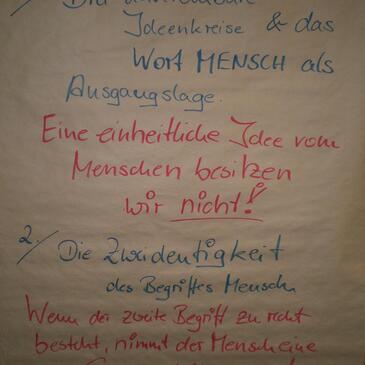 1/ Drei
Ideenkreise & das
Wort MENSCH als
Ausgangslage.
Eine einheitliche Idee vom
Menschen besitzen
wir nicht!
2./ Die Zweideutigkeit
des Begriffes Mensch
Wenn der zweite Begriff zu recht
besteht, nimmt der Mensch eine